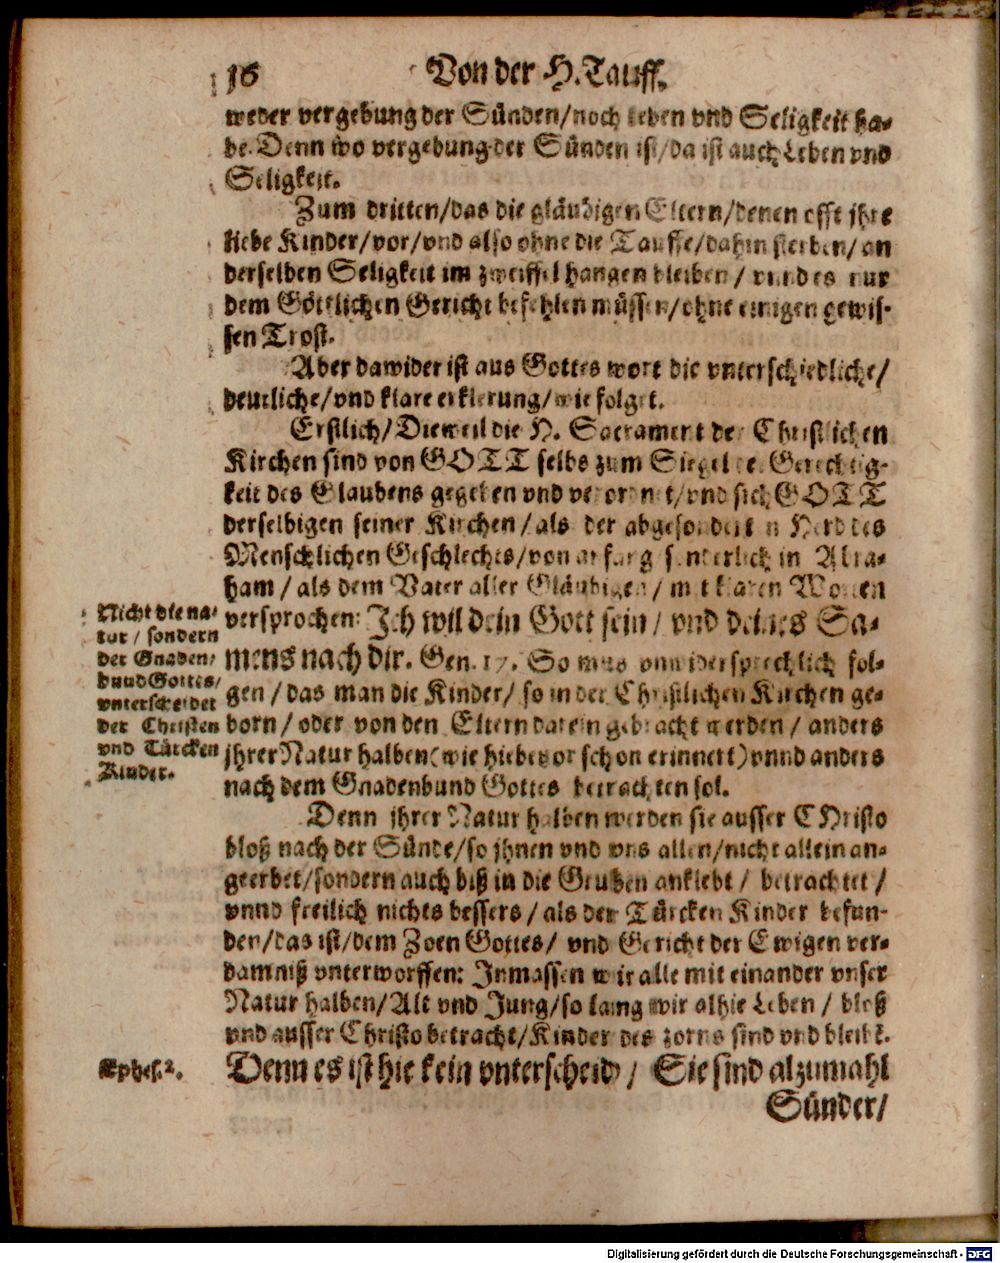 16 Von der H. Tauff.
weder vergebung der Sünden/noch leben vnd Seligkeit ha-
be. Denn wo vergebung der Sünden ist/da ist auch Leben vnd
Seligkeit.
Zum dritten/das die gläubigen Eltern/denen offt jhre
liebe Kinder/vor/vnd also ohne die Tauffe/dahin sterben/an
derselben Seligkeit im zweiffel hangen bleiben/ vnd es nur
dem Göttlichen Gericht befehlen müssen/ohne einigen gewis-
sen Trost.
Aber dawider ist aus Gottes wort die vnterschiedliche/
deutliche/vnd klare erklerung/wie folget.
Erstlich/Dieweil die H. Sacrament der Christlichen
Kirchen sind von GOTT selbs zum Siegel der Gerechtig-
keit des Glaubens gegeben vnd verordnet/vnd sich GOTT
derselbigen seiner Kirchen/als der abgesonderten Herd des
Menschlichen Geschlechts/von anfang sonderlich in Abra-
ham/als dem Vater aller Gläubigen/ mit klaren Worten
versprochen: Ich wil dein Gott sein/ vnd deines Sa-
mens nach dir. Gen. 17. So mus vnwidersprechlich fol-
gen/das man die Kinder/ so in der Christlichen Kirchen ge-
born/ oder von den Eltern darein gebracht werden/ anders
jhrer Natur halben(wie hiebevor schon erinnert)vnnd anders
nach dem Gnadenbund Gottes betrachten sol.
Nicht die na-
tur/ sondern
der Gnaden/
bund Gottes/
vnterscheidet
der Christen
vnd Türcken
Kinder.
Denn jhrer Natur halben werden sie ausser CHristo
bloß nach der Sünde/so jhnen vnd vns allen/nicht allein an-
geerbet/sondern auch biß in die Gruben anklebt/ betrachtet/
vnnd freilich nichts bessers/als der Türcken Kinder befun-
den/das ist/dem Zorn Gottes/ vnd Gericht der Ewigen ver-
damniß vnterworffen: Inmassen wir alle mit einander vnser
Natur halben/Alt vnd Jung/so lang wir alhie Leben/ bloß
vnd ausser Christo betracht/Kinder des zorns sind vnd bleibt.
Ephes. 2.
Denn es ist hie kein vnterscheid/ Sie sind alzumahl
Sünder/
Digitalisierung gefördert durch die Deutsche Forschungsgemeinschaft - DFG